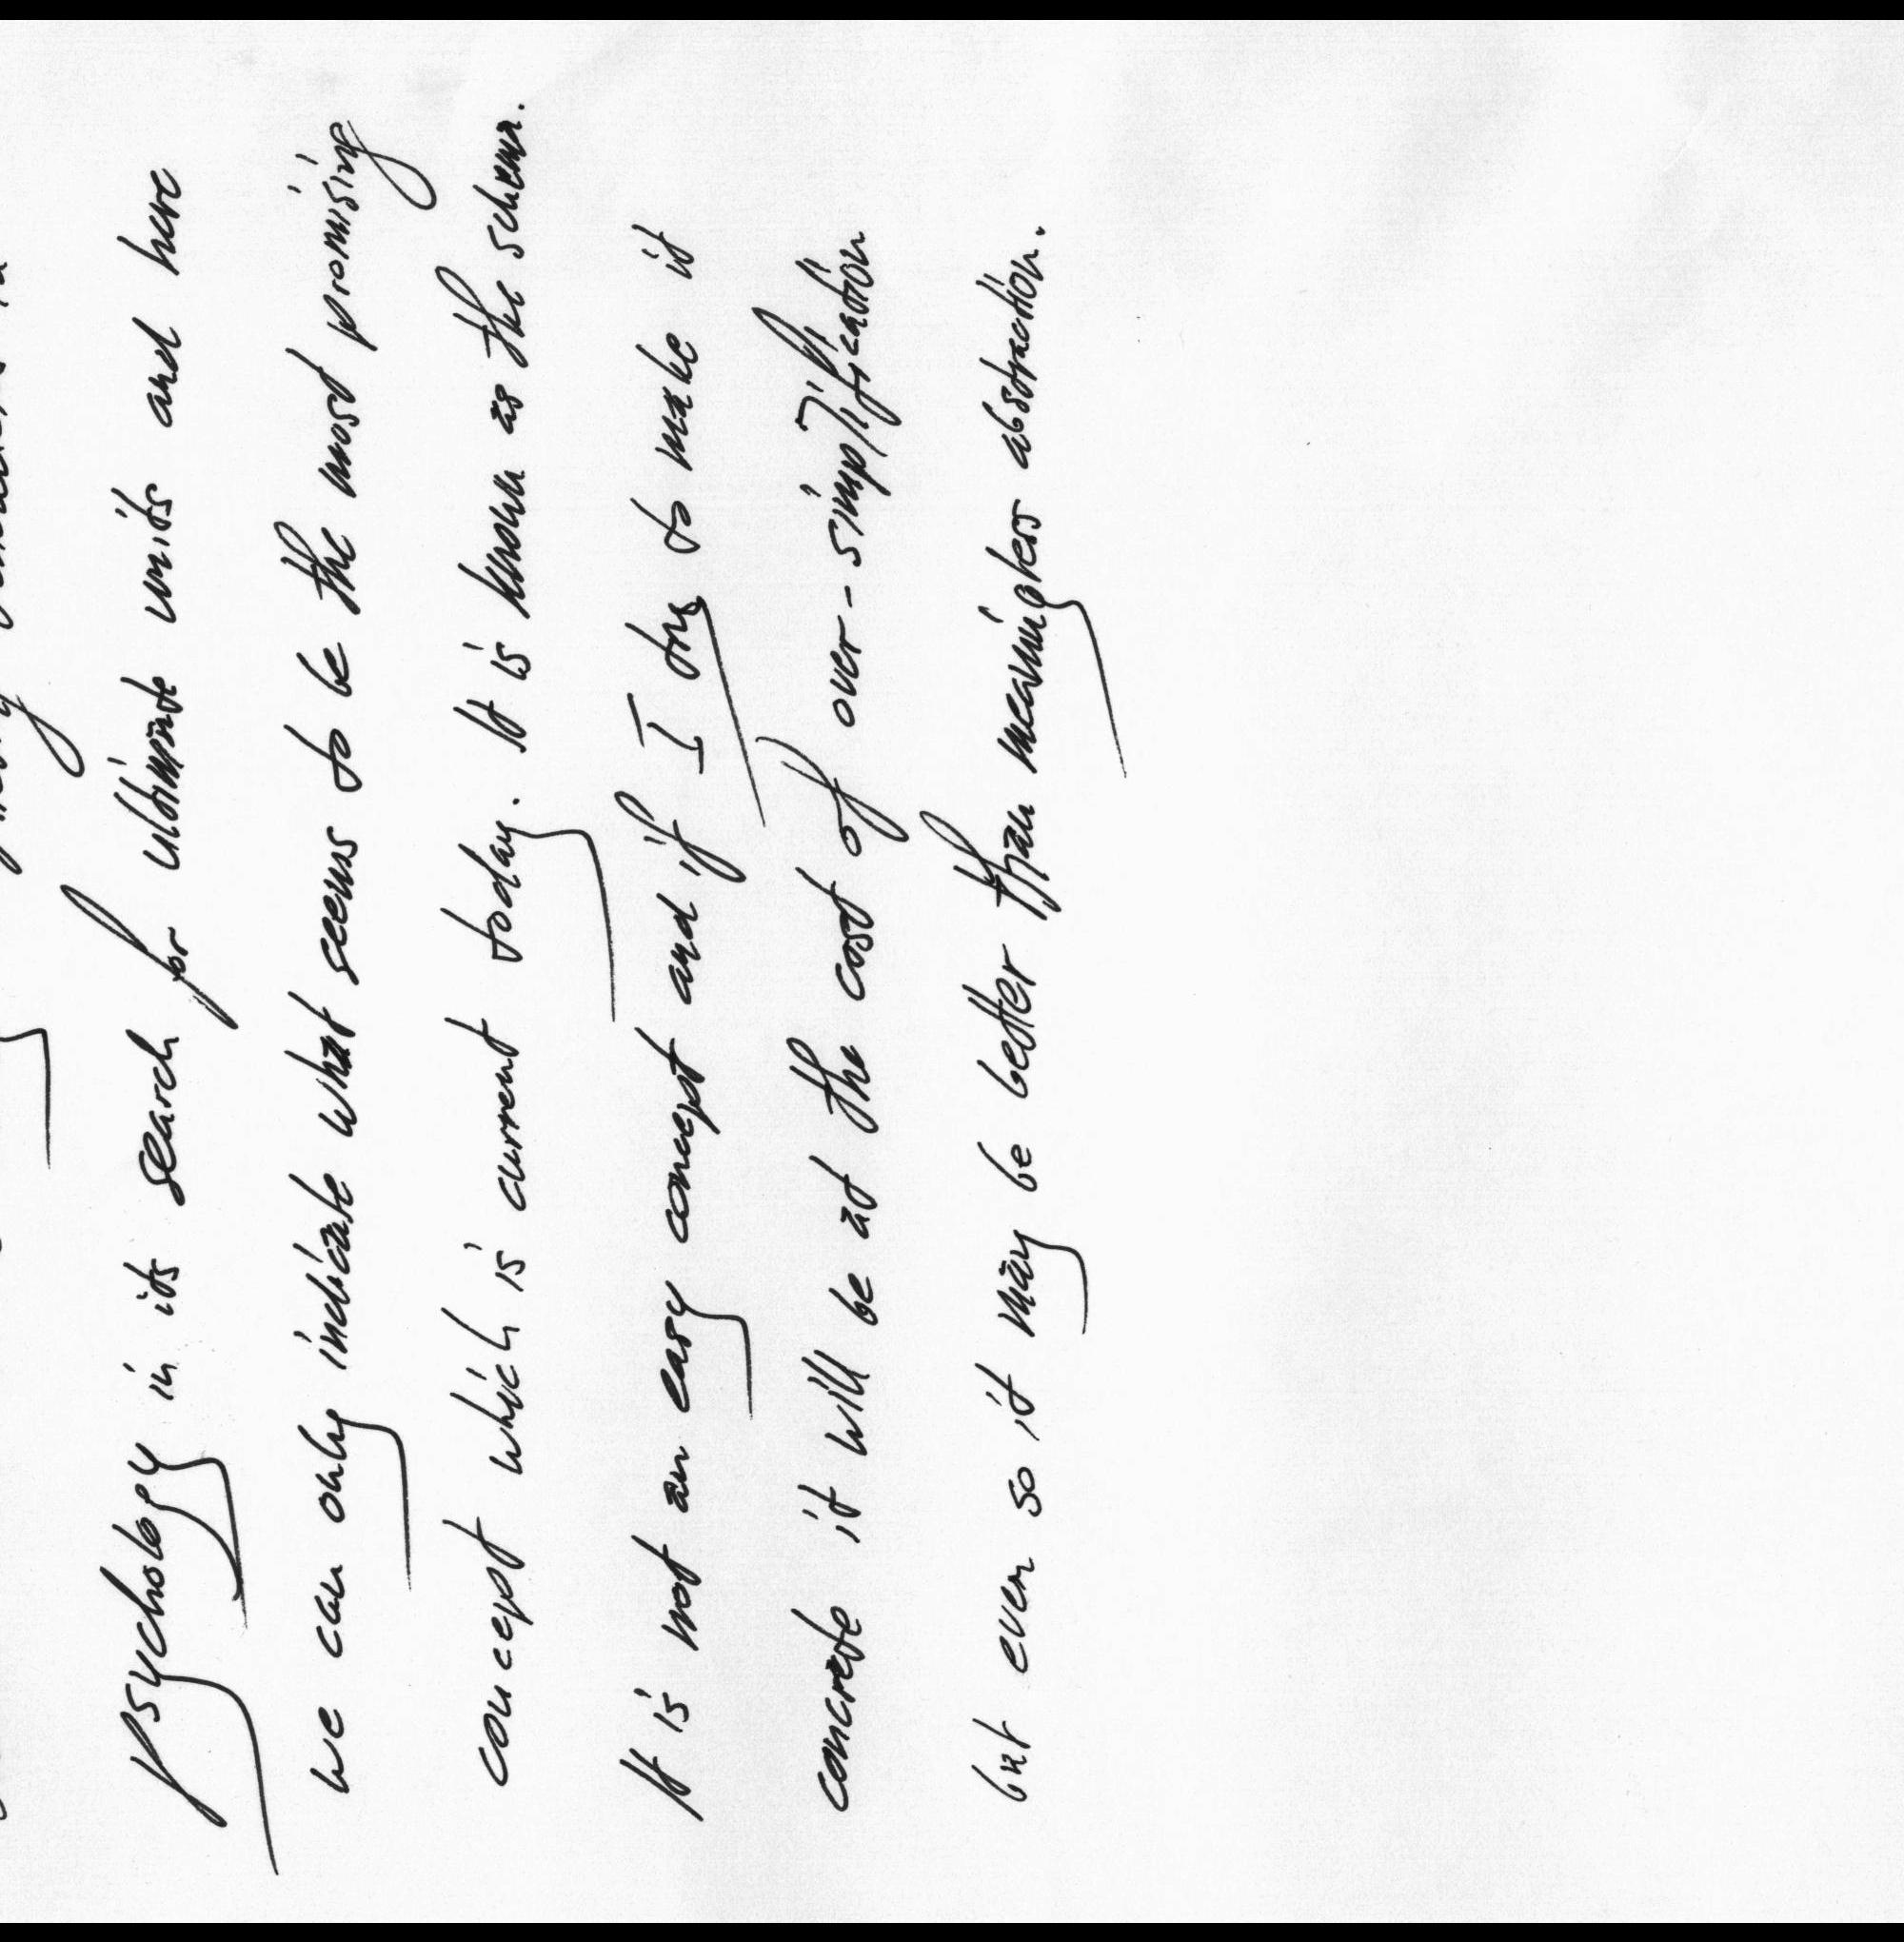 psychology in its search for ultimate units and here
we can only indicate what seems to be the most promising
concept which is current today. It is known as the schema.
It is not an easy concept and if I try to make it
concrete it will be at the cost of over-simplification
but even so it may be better than meaningless abstraction.